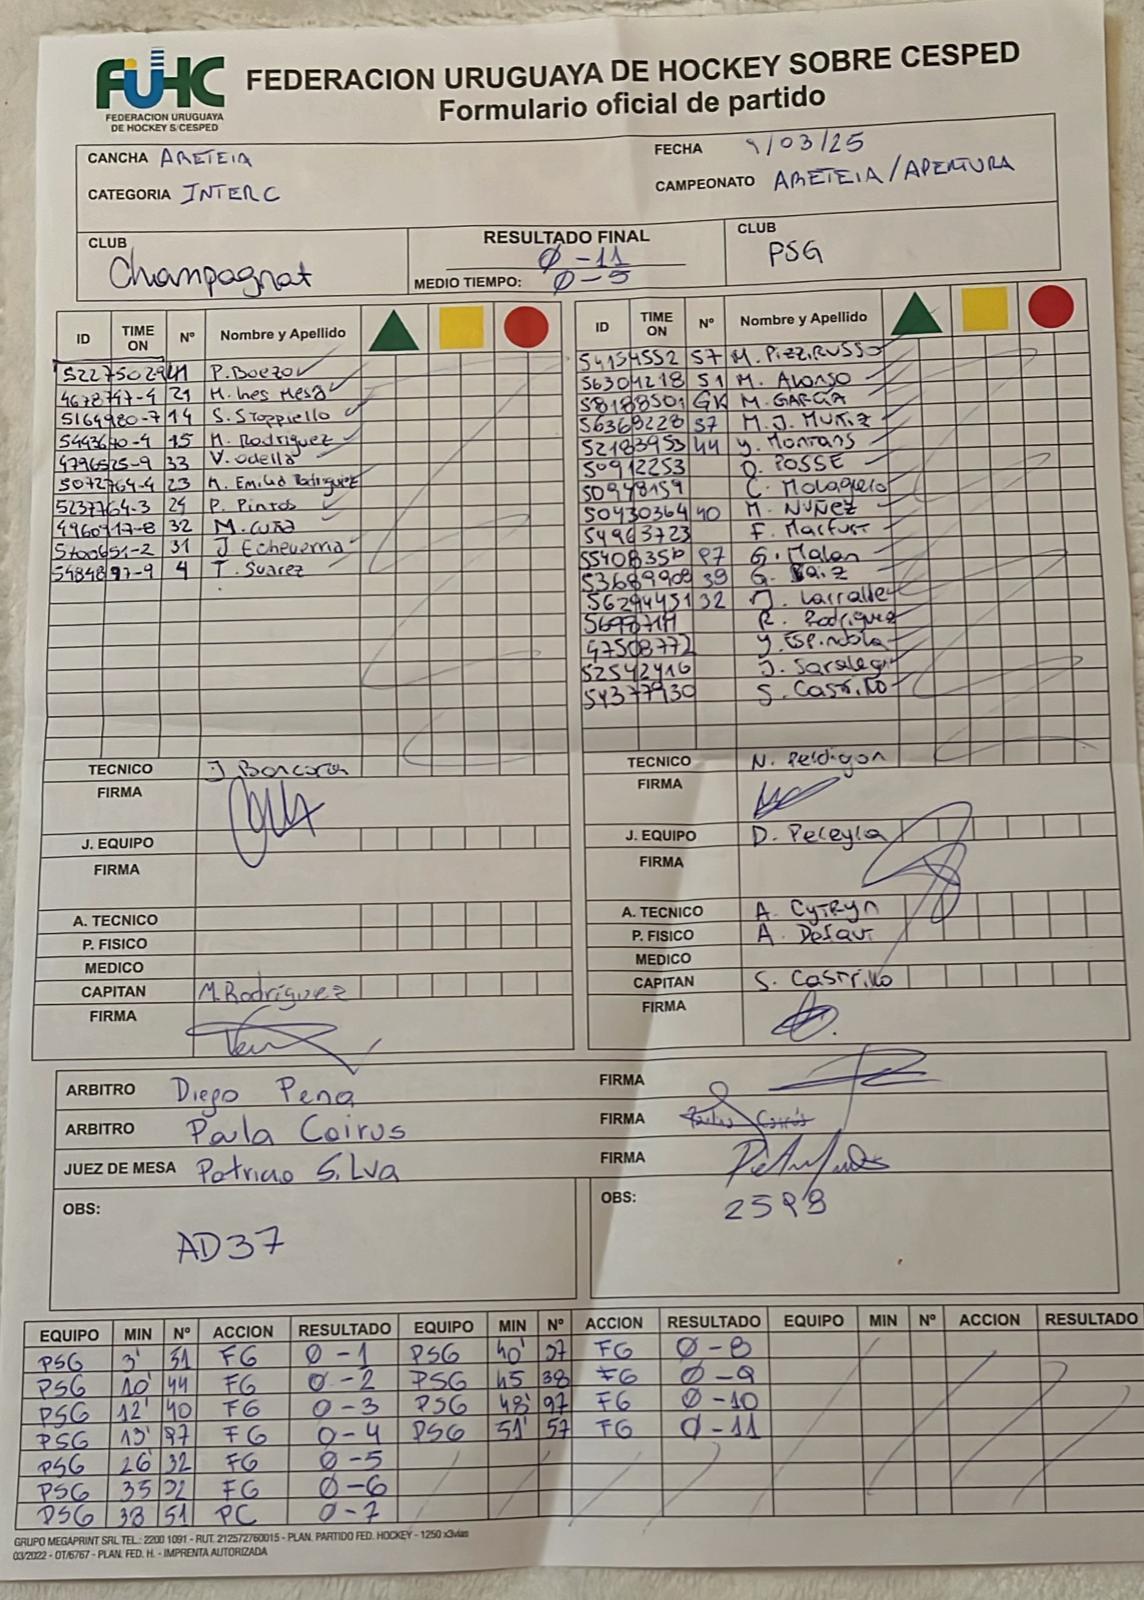 FUHC
FEDERACION URUGUAYA
DE HOCKEY S/CESPED
FEDERACION URUGUAYA DE HOCKEY SOBRE CESPED
Formulario oficial de partido
CANCHA ARETEIA
FECHA 9/03/25
CATEGORIA INTER C
CAMPEONATO ARETEIA/APERTURA
CLUB Champagnat
RESULTADO FINAL 0-11
MEDIO TIEMPO: 0-5
CLUB PSG
ID TIME ON Nº Nombre y Apellido
P. Baezo
4678797-4 21 M. Ines Mesa
5164980-7 14 S. Stoppiello
15 M. Rodriguez
4796525-9 33 V. Odella
5072764-4 23 M. Emilia Rodriguez
5237764-3 P. Pintos
4960917-8 32 M. Cura
5700651-2 31 J Echeverria
5484897-9 4 T. Suarez
ID TIME ON Nº Nombre y Apellido
54154552 57 M. Pizzirusso
56304218 51 M. Alonso
58188501 GK M. GARCIA
56369228 37 M. J. Muñiz
52183953 44 Y. Montans
50912253 POSSE
50948159 C. Molaguero
50430364 40 M. NUÑEZ
54963723 F. Marfurt
97 G. Malan
53689908 39 G.
56294451 32 Larralle
R. Rodriguez
47508772 Y. Espindola
52542416 J. Saralegi
54377930 S. Castrillo
TECNICO J Barcora
FIRMA
J. EQUIPO
FIRMA
A. TECNICO
P. FISICO
MEDICO
CAPITAN M. Rodríguez
FIRMA
TECNICO N. Perdigon
FIRMA
J. EQUIPO D. Pereyra
FIRMA
A. TECNICO A. Cytryn
P. FISICO A.
MEDICO
CAPITAN S. Castrillo
FIRMA
ARBITRO Diego Pena FIRMA
ARBITRO Paula Coirus FIRMA
JUEZ DE MESA Patricio Silva FIRMA
OBS: AD37
OBS: 2598
EQUIPO MIN Nº ACCION RESULTADO EQUIPO MIN Nº ACCION RESULTADO EQUIPO MIN Nº ACCION RESULTADO
PSG 3' 51 FG 0-1 PSG 40' FG 0-8
PSG 10' 44 FG 0-2 PSG 45 38 FG 0-9
PSG 12' 40 FG 0-3 PSG 48' 97 FG 0-10
PSG 13' 97 FG 0-4 PSG 51' 57 FG 0-11
PSG 26' 32 FG 0-5
PSG 35 32 FG 0-6
PSG 38 51 PC 0-7
GRUPO MEGAPRINT SRL TEL.: 2200 1091 - RUT. 212572760015 - PLAN. PARTIDO FED. HOCKEY - 1250 x3vias
03/2022 - OT/6767 - PLAN. FED. H. - IMPRENTA AUTORIZADA